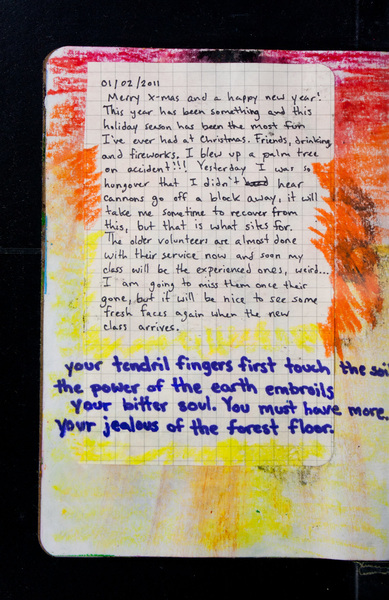 01/02/2011
Merry X-mas and a happy new year!
This year has been something and this
holiday season has been the most fun
I've ever had at Christmas. Friends, drinking,
and fireworks. I blew up a palm tree
on accident!!! Yesterday I was so
hongover that I didn't hear
cannons go off a block away, it will
take me sometime to recover from
this, but that is what sites for.
The older volunteers are almost done
with their service now and soon my
class will be the experienced ones, weird...
I am going to miss them once their
gone, but it will be nice to see some
fresh faces again when the new
class arrives.
your tendril fingers first touch the soil
the power of the earth embroils
your bitter soul. You must have more.
your jealous of the forest floor.